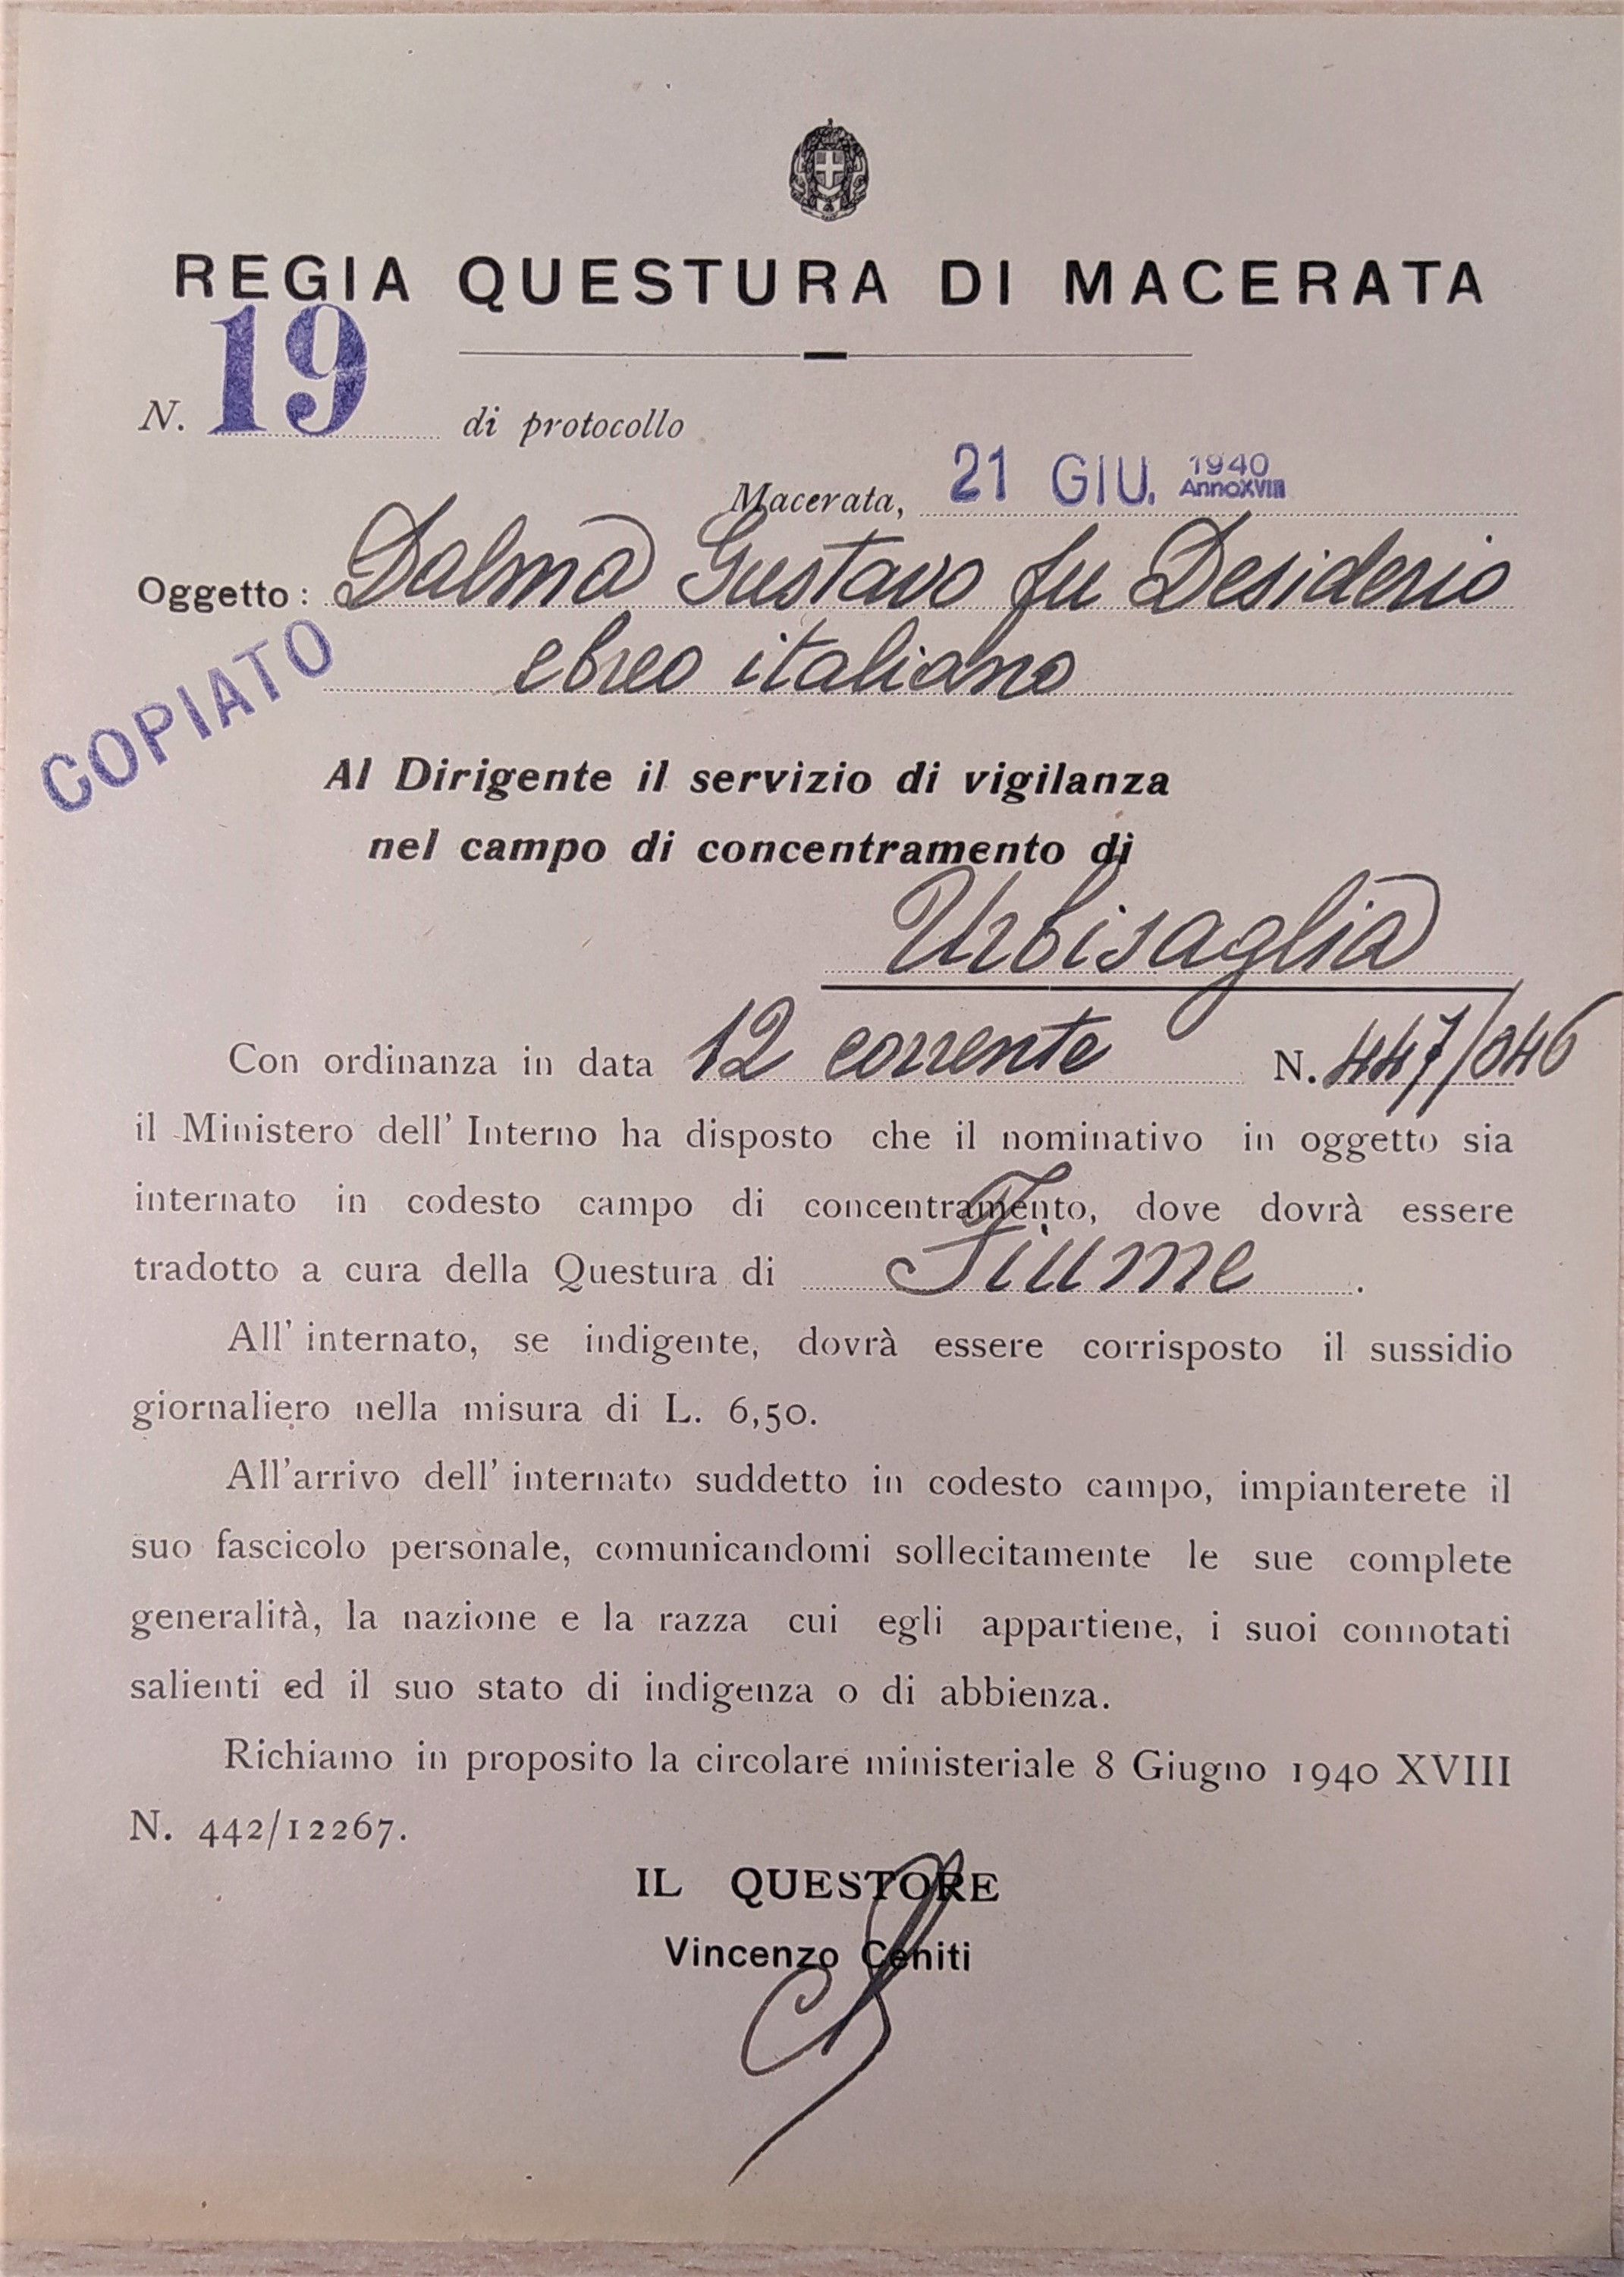 REGIA QUESTURA DI MACERATA
N. 19 di protocollo
Macerata, 21 GIU. 1940
AnnoXVIII
Oggetto: Dalma Gustavo fu Desiderio
ebreo italiano
COPIATO
Al Dirigente il servizio di vigilanza
nel campo di concentramento di
Urbisaglia
Con ordinanza in data 12 corrente N. 447/046
il Ministero dell' Interno ha disposto che il nominativo in oggetto sia
internato in codesto campo di concentramento, dove dovrà essere
tradotto a cura della Questura di Fiume.
All' internato, se indigente, dovrà essere corrisposto il sussidio
giornaliero nella misura di L. 6,50.
All'arrivo dell' internato suddetto in codesto campo, impianterete il
suo fascicolo personale, comunicandomi sollecitamente le sue complete
generalità, la nazione e la razza cui egli appartiene, i suoi connotati
salienti ed il suo stato di indigenza o di abbienza.
Richiamo in proposito la circolare ministeriale 8 Giugno 1940 XVIII
N. 442/12267.
IL QUESTORE
Vincenzo Ceniti